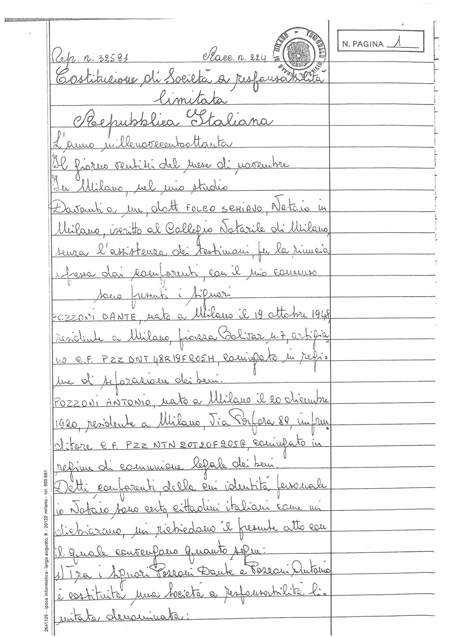 N. PAGINA 1
Rep. n. 32591 Racc. n. 224
Costituzione di Società a responsabilità
limitata
Repubblica Italiana
L'anno millenovecentottanta
Il giorno ventisei del mese di novembre
In Milano, nel mio studio
Davanti a me, dott. FOLCO SCHIAVO, Notaio in
Milano, iscritto al Collegio Notarile di Milano,
senza l'assistenza dei testimoni, per la rinuncia
espressa dai comparenti, con il mio consenso
sono presenti i signori
POZZONI DANTE, nato a Milano il 19 ottobre 1948
residente a Milano, piazza Bolivar n. 7, artigia
no C.F. PZZ DNT 48R19F205H, coniugato in regi
me di separazione dei beni.
POZZONI ANTONIO, nato a Milano il 20 dicembre
1920, residente a Milano, Via Porpora 89, impren
ditore C.F. PZZ NTN 20T20F205G, coniugato in
regime di comunione legale dei beni.
Detti comparenti della cui identità personale
io Notaio sono certo cittadini italiani come mi
dichiarano, mi richiedono il presente atto con
il quale convengono quanto segue:
1) Tra i signori Pozzoni Dante e Pozzoni Antonio
è costituita una Società a responsabilità li-
mitata denominata: